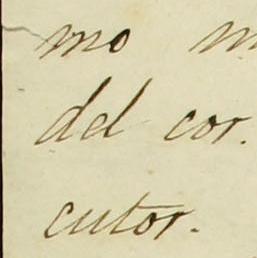 mo
del cor.
cutor.